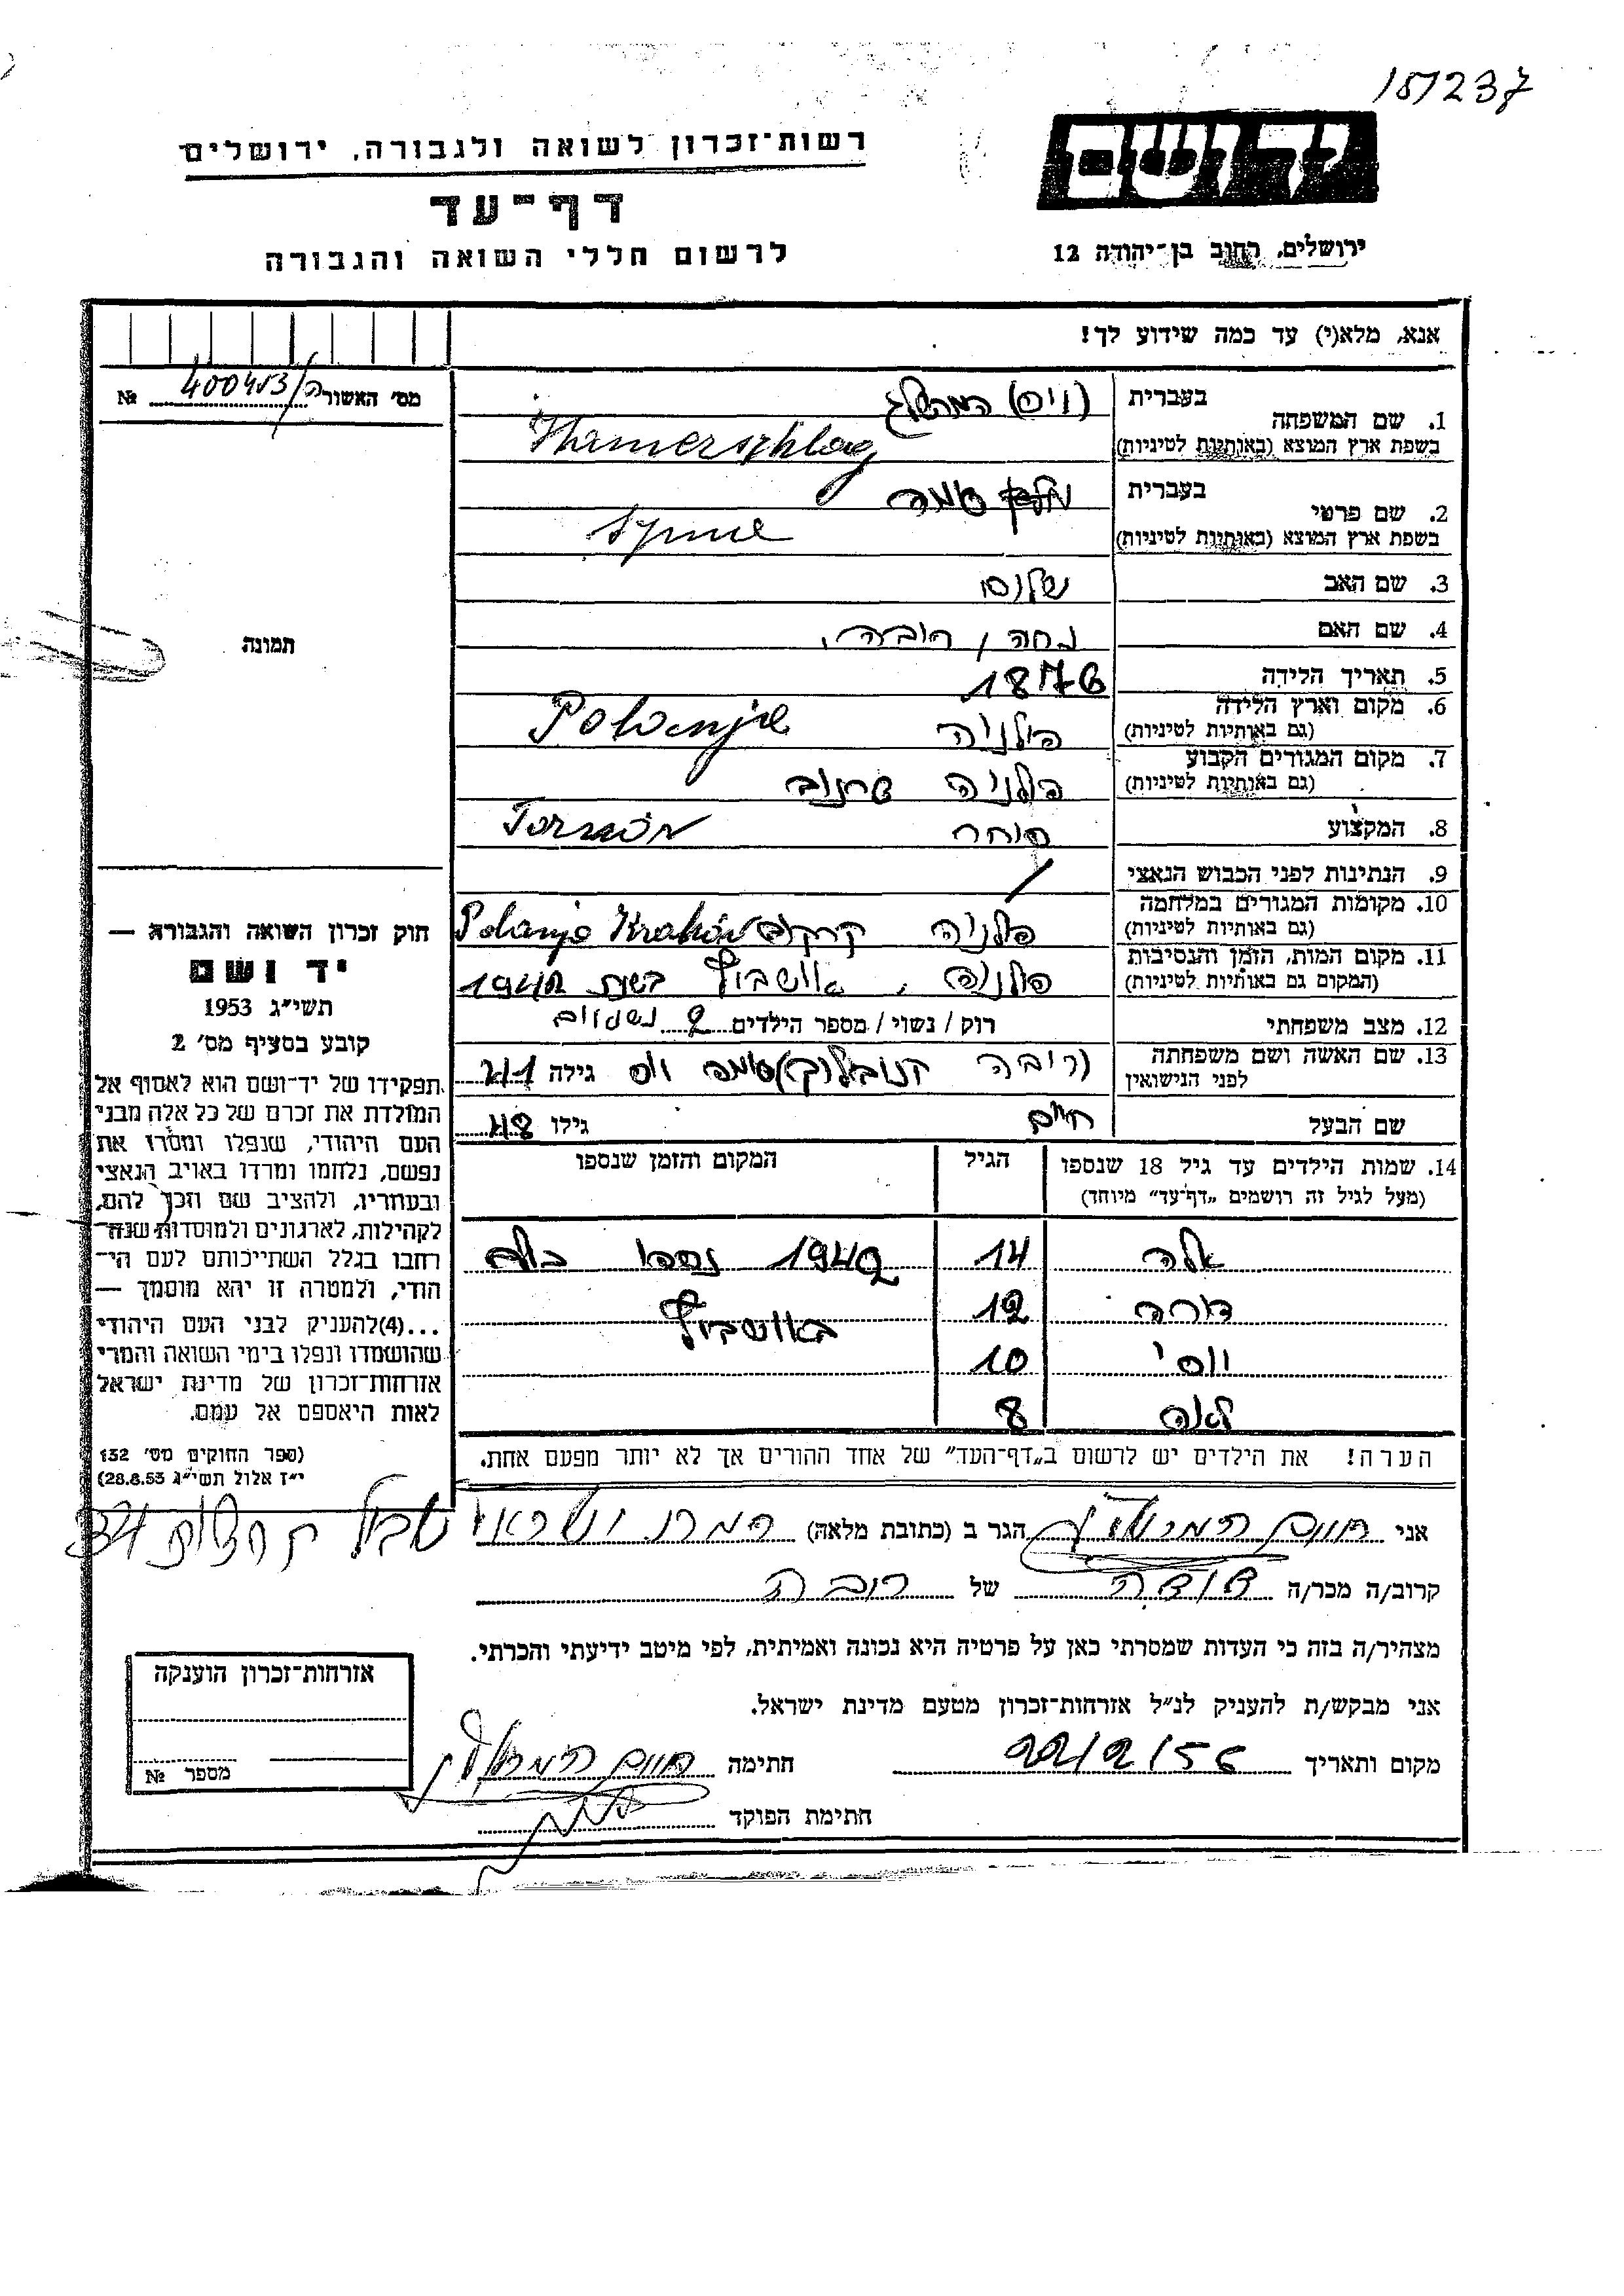 151237
רשות־זכרון לשואה ולגבורה, ירושלים
יד ושם
דף־עד
לרשום חללי השואה והגבורה
ירושלים, רחוב בן־יהודה 12
אנא, מלא(י) עד כמה שידוע לך!
מס' האשור № 400453/ה
1. שם המשפחה בעברית (וויס) המרשלג
בשפת ארץ המוצא (באותיות לטיניות) Hamerschlag
2. שם פרטי בעברית סימה
בשפת ארץ המוצא (באותיות לטיניות) Syme
3. שם האב שלום
4. שם האם נחה, רובה
5. תאריך הלידה 1876
6. מקום וארץ הלידה
(גם באותיות לטיניות) פולניה Polanja
7. מקום המגורים הקבוע
(גם באותיות לטיניות) פולניה טרנוב
8. המקצוע סוחר Tarnów
9. הנתינות לפני הכבוש הנאצי /
10. מקומות המגורים במלחמה
(גם באותיות לטיניות) פולניה קרקוב Polanja Kraków
11. מקום המות, הזמן והנסיבות
(המקום גם באותיות לטיניות) פולניה, אושביץ בשנת 1942
12. מצב משפחתי רוק / נשוי / מספר הילדים 2
13. שם האשה ושם משפחתה
לפני הנישואין גילה 41
שם הבעל חיים גילו 48
14. שמות הילדים עד גיל 18 שנספו
(מעל לגיל זה רושמים „דף־עד" מיוחד)
הגיל
המקום והזמן שנספו
אלה 14 1942 נספו כולם
דורה 12 באושביץ
יוסי 10
לאה 8
הערה! את הילדים יש לרשום ב„דף־העד" של אחד ההורים אך לא יותר מפעם אחת.
תמונה
חוק זכרון השואה והגבורה —
יד ושם
תשי"ג 1953
קובע בסעיף מס' 2
תפקידו של יד־ושם הוא לאסוף אל
המולדת את זכרם של כל אלה מבני
העם היהודי, שנפלו ומסרו את
נפשם, נלחמו ומרדו באויב הנאצי
ובעוזריו, ולהציב שם וזכר להם,
לקהילות, לארגונים ולמוסדות שנח־
רחבו בגלל השתייכותם לעם הי־
הודי, ולמטרה זו יהא מוסמך —
...(4)להעניק לבני העם היהודי
שהושמדו ונפלו בימי השואה והמרי
אזרחות־זכרון של מדינת ישראל
לאות היאספם אל עמם.
(ספר החוקים מס' 132
י"ז אלול תשי"ג 28.8.53)
אני חיים המרשלג הגר ב (כתובת מלאה) 34
קרוב/ה מכר/ה דודה של רובה
מצהיר/ה בזה כי העדות שמסרתי כאן על פרטיה היא נכונה ואמיתית, לפי מיטב ידיעתי והכרתי.
אני מבקש/ת להעניק לנ"ל אזרחות־זכרון מטעם מדינת ישראל.
מקום ותאריך 22/2/56 חתימה חיים המרשלג
חתימת הפוקד
אזרחות־זכרון הוענקה
מספר №